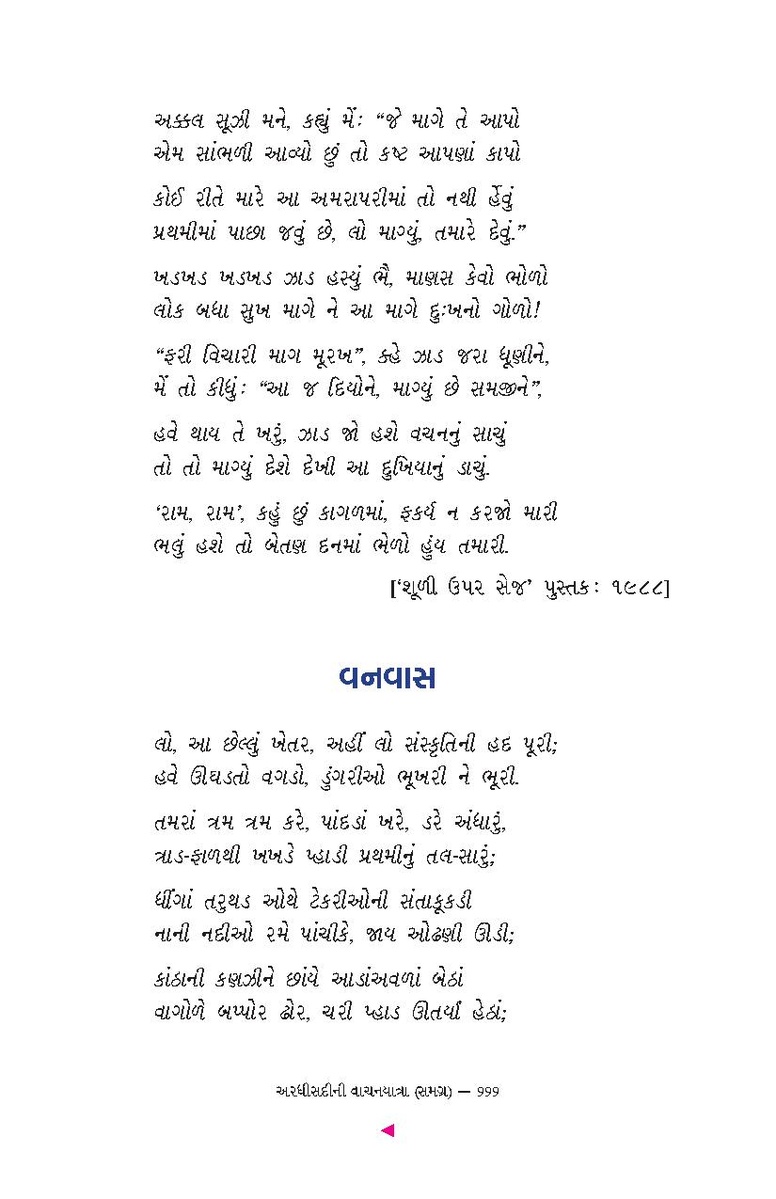 અક્કલ સૂઝી મને, કહ્યું મેંઃ “જે માગે તે આપો
એમ સાંભળી આવ્યો છું તો કષ્ટ આપણાં કાપો
કોઈ રીતે મારે આ અમરાપરીમાં તો નથી ર્હેવું
પ્રથમીમાં પાછા જવું છે, લો માગ્યું, તમારે દેવું.”
ખડખડ ખડખડ ઝાડ હસ્યું ભૈ, માણસ કેવો ભોળો
લોક બધા સુખ માગે ને આ માગે દુઃખનો ગોળો!
“ફરી વિચારી માગ મૂરખ”, ક્હે ઝાડ જરા ધૂણીને,
મેં તો કીધુંઃ “આ જ દિયોને, માગ્યું છે સમજીને”,
હવે થાય તે ખરું, ઝાડ જો હશે વચનનું સાચું
તો તો માગ્યું દેશે દેખી આ દુખિયાનું ડાચું.
‘રામ, રામ’, કહું છું કાગળમાં, ફકર્ય ન કરજો મારી
ભલું હશે તો બેતણ દનમાં ભેળો હુંય તમારી.
[‘શૂળી ઉપર સેજ’ પુસ્તકઃ ૧૯૮૮]
વનવાસ
લો, આ છેલ્લું ખેતર, અહીં લો સંસ્કૃતિની હદ પૂરી;
હવે ઊઘડતો વગડો, ડુંગરીઓ ભૂખરી ને ભૂરી.
તમરાં ત્રમ ત્રમ કરે, પાંદડાં ખરે, ડરે અંધારું,
ત્રાડ-ફાળથી ખખડે પ્હાડી પ્રથમીનું તલ-સારું;
ધીંગાં તરુથડ ઓથે ટેકરીઓની સંતાકૂકડી
નાની નદીઓ રમે પાંચીકે, જાય ઓઢણી ઊડી;
કાંઠાની કણઝીને છાંયે આડાંઅવળાં બેઠાં
વાગોળે બપ્પોર ઢોર, ચરી પ્હાડ ઊતર્યાં હેઠાં;
અરધીસદીની વાચનયાત્રા (સમગ્ર) — 999